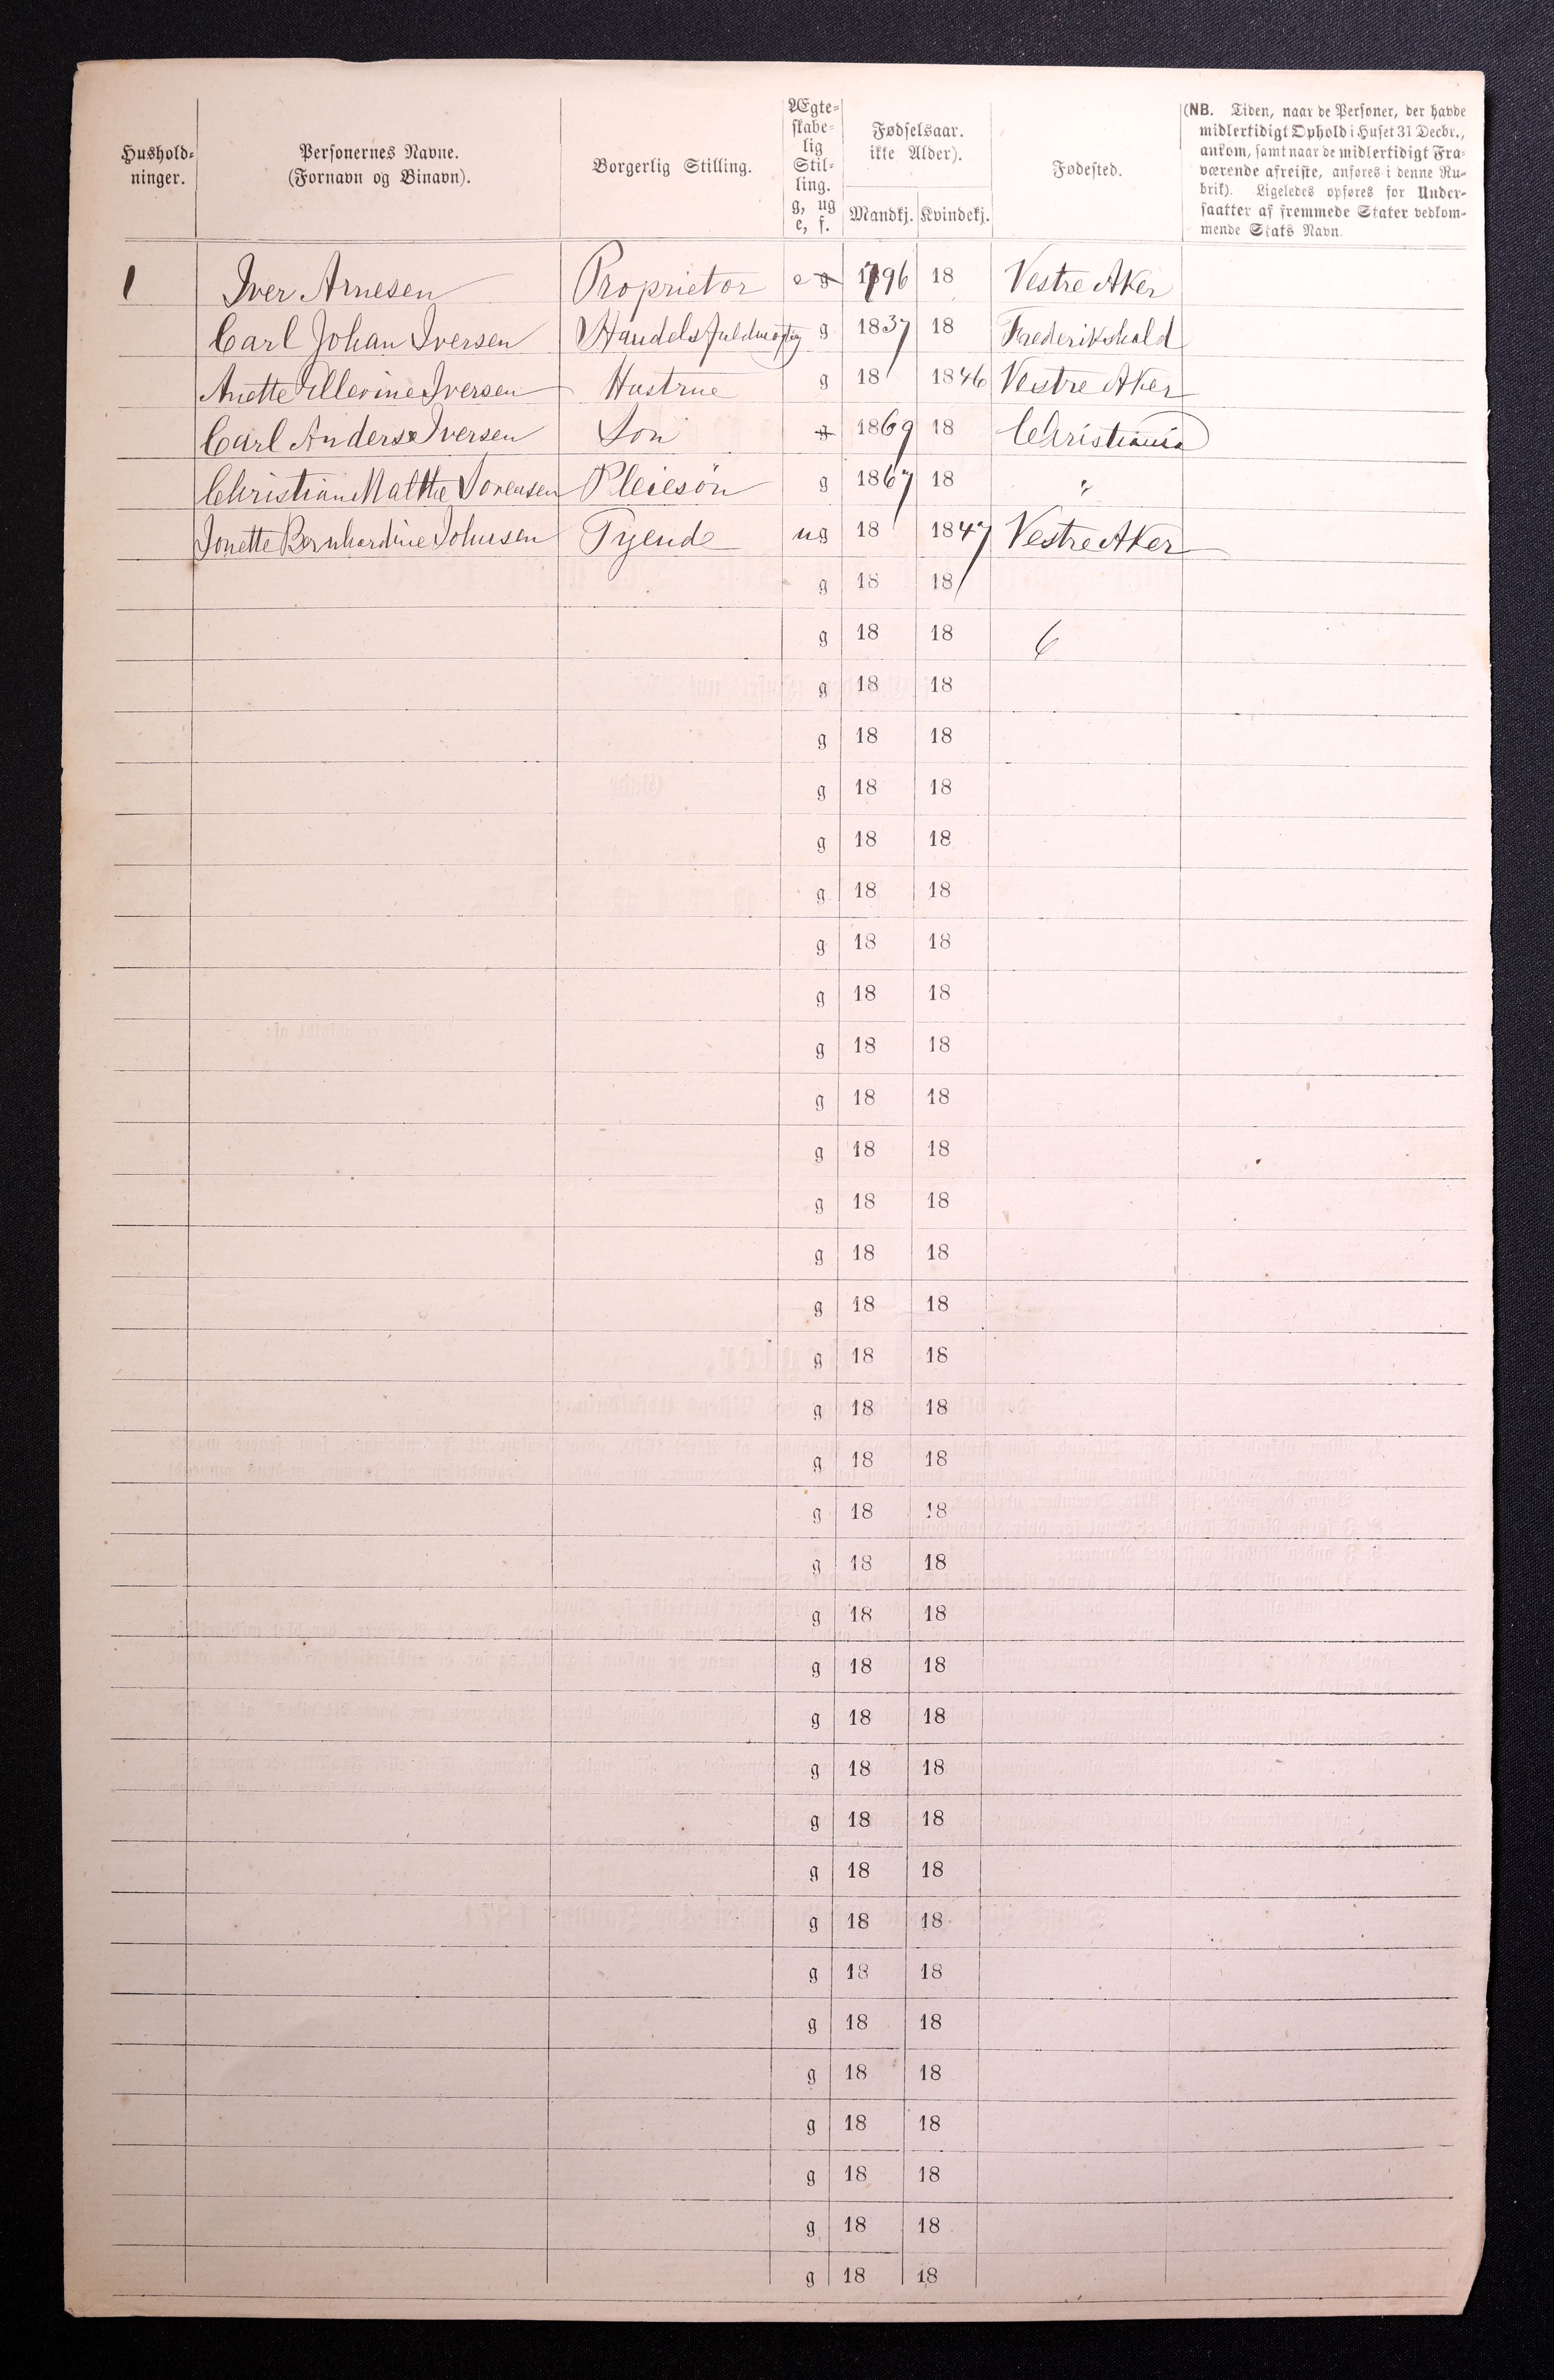 Hushold-
ninger.
Personernes Navne.
(Fornavn og Binavn).
Borgerlig Stilling.
Ægte-
skabe-
lig
Stil-
ling.
g, ug
e, f.
Fødselsaar.
ikke Alder).
Mandkj. Kvindekj.
Fødested.
(NB. Tiden, naar de Personer, der havde
midlertidigt Ophold i Huset 31 Decbr.,
ankom, samt naar de midlertidigt Fra-
værende afreiste, anføres i denne Ru-
brik). Ligeledes opføres for Under-
saatter af fremmede Stater vedkom-
mende Stats Navn.
1 Iver Arnesen Proprietør e g 1796 18 Vestre Aker
Carl Johan Iversen Handelsfuldmægtig g 1837 18 Frederikshald
Anette Ellevine Iversen Hustrue g 18 1846 Vestre Aker
Carl Anders Iversen Søn g 1869 18 Christiania
Christian Malthe Sørensen Pleiesøn g 1867 18 "
Jonette Bernhardine Johnsen Tyende ug 18 1847 Vestre Aker
g 18 18
g 18 18 6
g 18 18
g 18 18
g 18 18
g 18 18
g 18 18
g 18 18
g 18 18
g 18 18
g 18 18
g 18 18
g 18 18
g 18 18
g 18 18
g 18 18
g 18 18
g 18 18
g 18 18
g 18 18
g 18 18
g 18 18
g 18 18
g 18 18
g 18 18
g 18 18
g 18 18
g 18 18
g 18 18
g 18 18
g 18 18
g 18 18
g 18 18
g 18 18